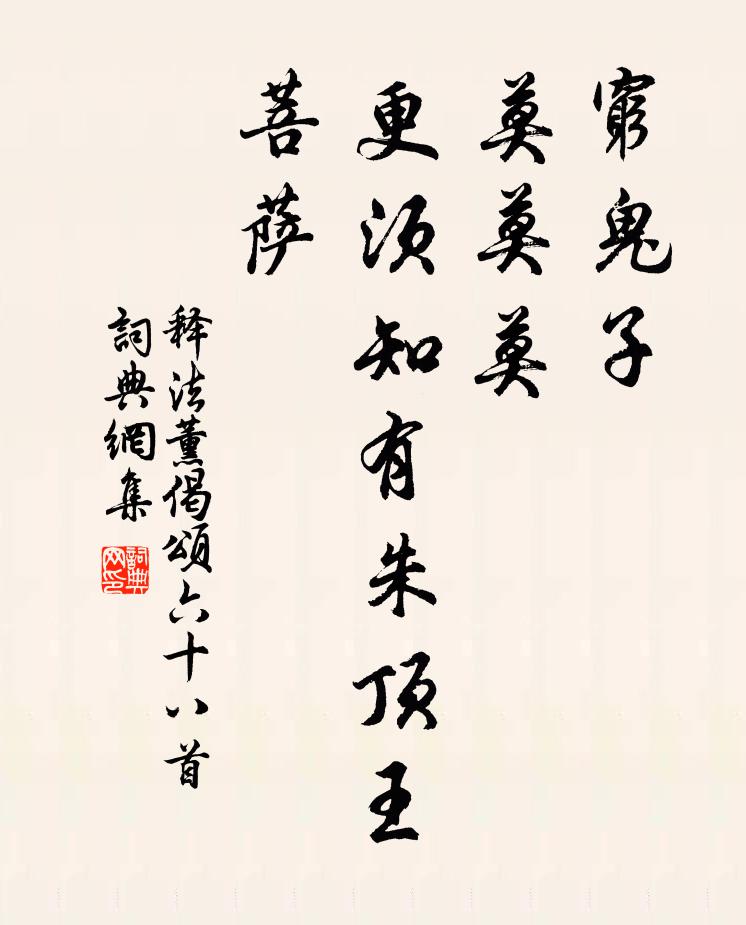 窮鬼子
莫莫莫
更須知有朱頂王
菩薩
释法薰偈頌六十八首
詞典網集
詞典网印